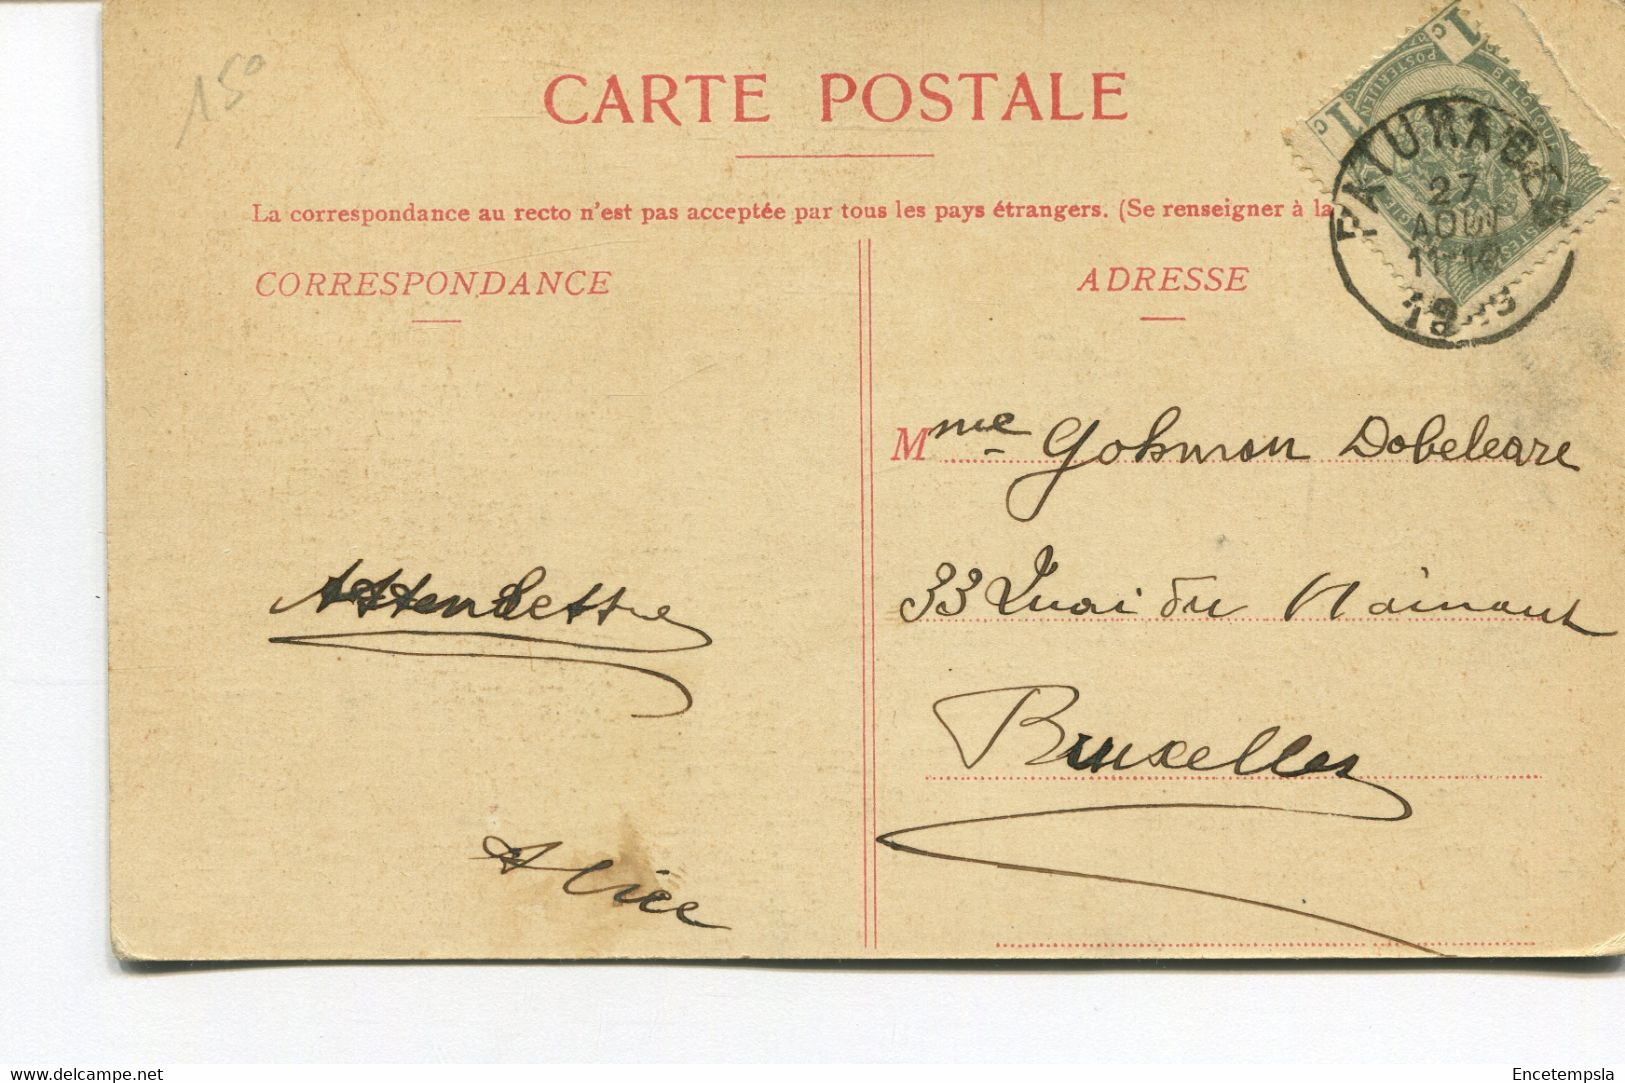 15°
CARTE POSTALE
La correspondance au recto n'est pas acceptée par tous les pays étrangers. (Se renseigner à la
CORRESPONDANCE
ADRESSE
1 c
1 c
BELGIQUE
PATURAGES
27
AOUT
11-12
Mme Gohmon Dobeleare
33 Quai du Hainaut
Bruxelles
Attendlettre
Alice
www.delcampe.net
Encetempsla